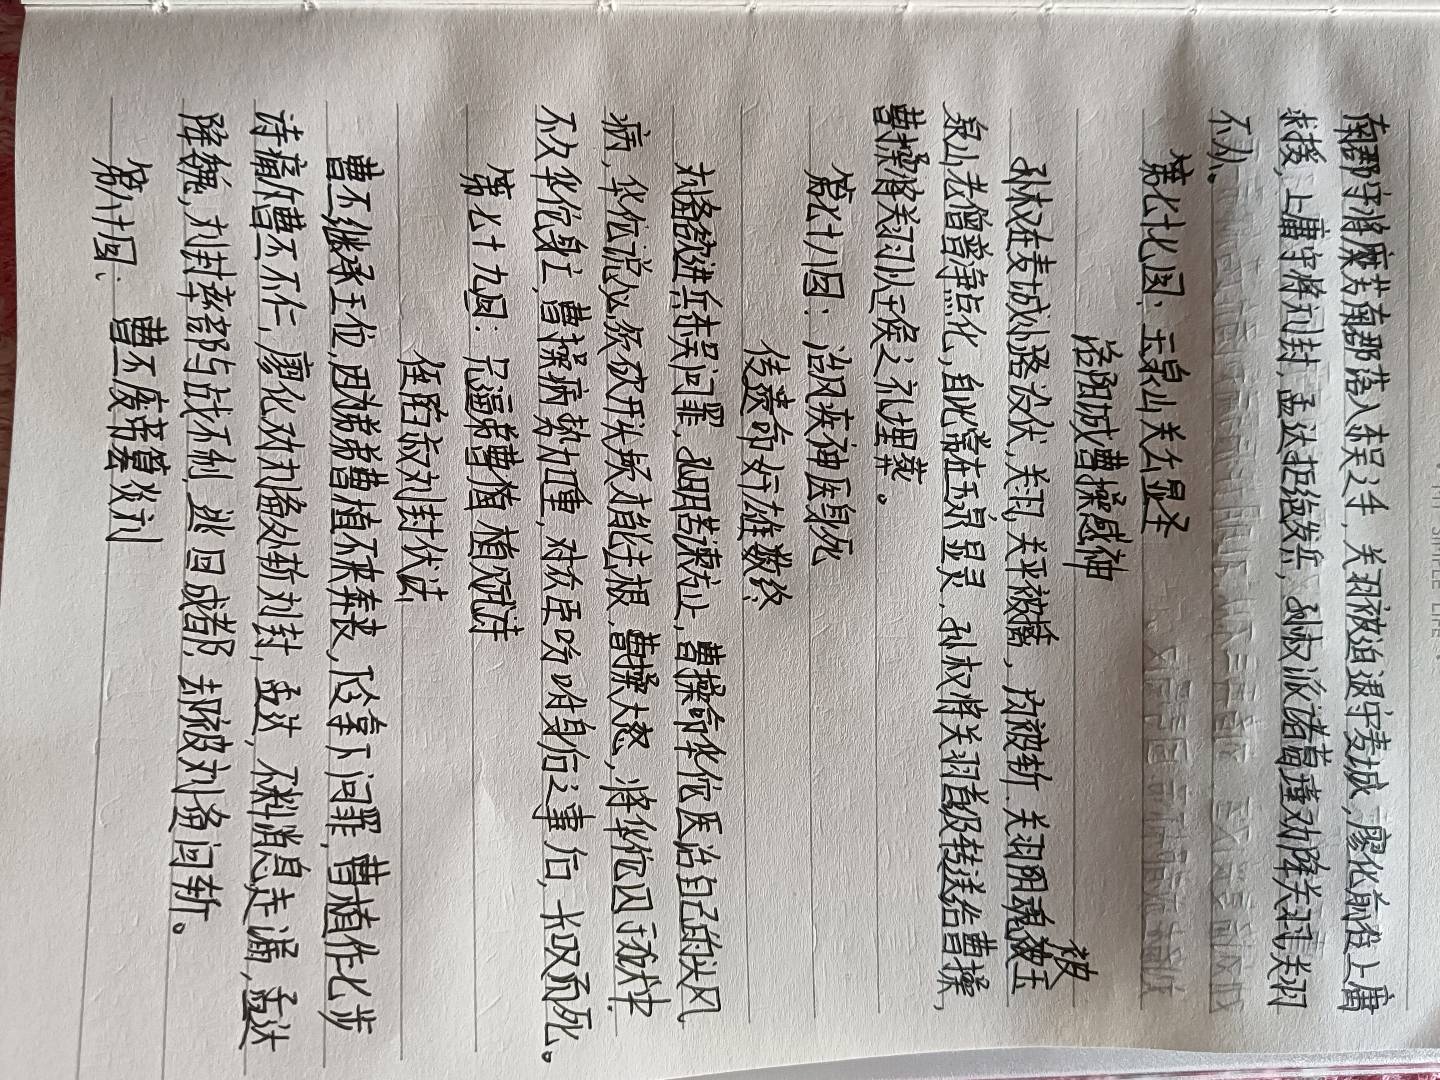 南郡守将糜芳南郡落入东吴之手,关羽被迫退守麦城,廖化前往上庸
求援,上庸守将刘封,孟达拒绝发兵,孙权派诸葛瑾劝降关羽,关羽
不从。
第七十七回:玉泉山关公显圣
洛阳城曹操感神
孙权在麦城小路设伏,关羽,关平被擒,均被斩.关羽阴魂被玉
泉山老僧普净点化,自此常在玉泉显灵,孙权将关羽首级转送给曹操,
曹操将关羽以王侯之礼埋葬。
第七十八回:治风疾神医身死
传遗命奸雄数终
刘备欲进兵东吴问罪,孔明苦谏方止,曹操命华佗医治自己的头风
病,华佗说必须砍开头颅才能去根,曹操大怒,将华佗囚于狱中.
不久华佗身亡,曹操病势加重,对众臣吩咐身后之事后,长叹而死。
第七十九回:兄逼弟曹植赋诗
侄陷叔刘封伏法
曹丕继承王位,因为弟弟曹植不来奔丧,问罪,曹植作七步
诗痛斥曹丕不仁,廖化劝刘备处斩刘封,孟达,不料消息走漏,孟达
降魏,刘封率部与战不利,逃回成都,却被刘备问斩。
第八十回:曹丕废帝篡炎刘
SIMPLE LIFE